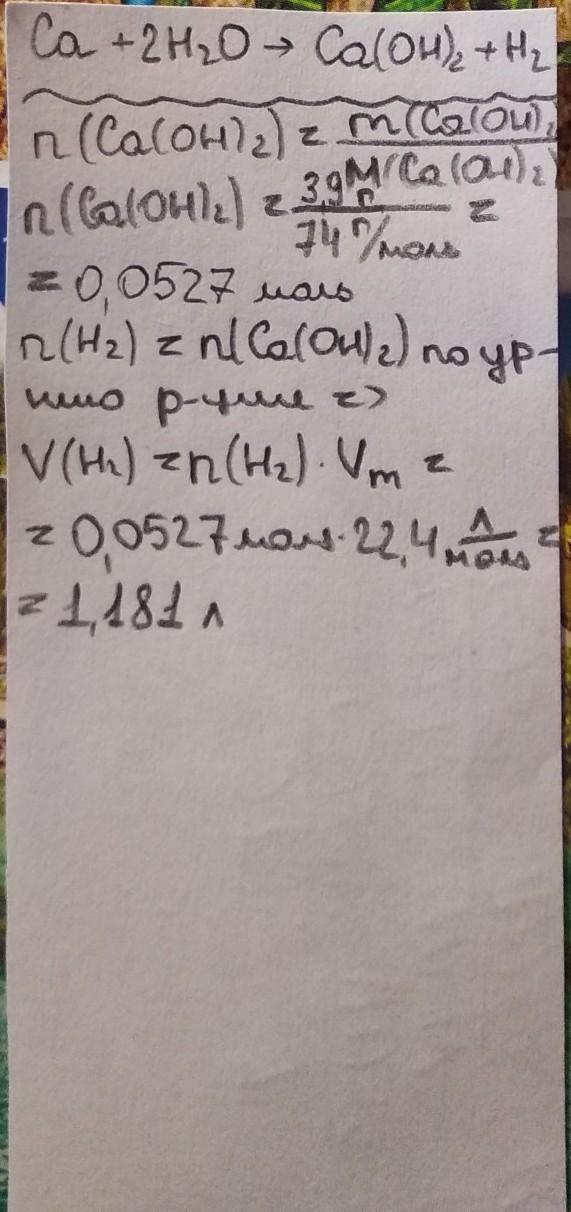 Ca + 2H₂O → Ca(OH)₂ + H₂
n(Ca(OH)₂) = m(Ca(OH)₂
M(Ca(OH)₂)
n(Ca(OH)₂) = 3,9 г =
74 г/моль
= 0,0527 моль
n(H₂) = n(Ca(OH)₂) по ур-
нию р-ции =>
V(H₂) = n(H₂) · Vm =
= 0,0527 моль · 22,4 л/моль =
= 1,181 л